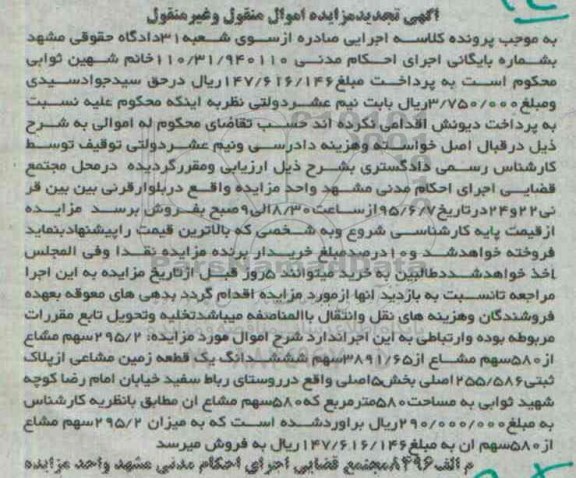 آگهی تجدیدمزایده اموال منقول وغیرمنقول
به موجب پرونده کلاسه اجرایی صادره ازسوی شعبه۳۱دادگاه حقوقی مشهد
بشماره بایگانی اجرای احکام مدنی ۱۱۰/۳۱/۹۴۰۱۱۰خانم شهین ثوابی
محکوم است به پرداخت مبلغ۱۴۷/۶۱۶/۱۴۶ریال درحق سیدجوادسیدی
ومبلغ۳/۷۵۰/۰۰۰ریال بابت نیم عشردولتی نظربه اینکه محکوم علیه نسبت
به پرداخت دیونش اقدامی نکرده اند حسب تقاضای محکوم له اموالی به شرح
ذیل درقبال اصل خواسته وهزینه دادرسی ونیم عشردولتی توقیف توسط
کارشناس رسمی دادگستری بشرح ذیل ارزیابی ومقررگردیده درمحل مجتمع
قضایی اجرای احکام مدنی مشهد واحد مزایده واقع دربلوارقرنی بین بین قر
نی۲۲و۲۴درتاریخ۹۵/۶/۷ازساعت۸/۳۰الی۹صبح بفروش برسد مزایده
ازقیمت پایه کارشناسی شروع وبه شخصی که بالاترین قیمت راپیشنهادبنماید
فروخته خواهدشد و۱۰درصد مبلغ خریداز برنده مزایده نقدا وفی المجلس
اخذ خواهدشددطالبین به خریدمیتوانند ۵روز قبل ازتاریخ مزایده به این اجرا
مراجعه تانسبت به بازدید انها ازمورد مزایده اقدام گردد بدهی های معوقه بعهده
فروشندگان وهزینه های نقل وانتقال باالمناصفه میباشدتخلیه وتحویل تابع مقررات
مربوطه بوده وارتباطی به این اجراندارد شرح اموال مورد مزایده: ۲۹۵/۲سهم مشاع
از۵۸۰سهم مشاع از۳۸۹۱/۶۵سهم ششدانگ یک قطعه زمین مشاعی ازپلاک
ثبتی۲۵۵/۵۸۶اصلی بخش۵اصلی واقع درروستای رباط سفید خیابان امام رضا کوچه
شهید ثوابی به مساحت۵۸۰مترمربع که۵۸۰سهم مشاع ان مطابق بانظریه کارشناس
به مبلغ۲۹۰/۰۰۰/۰۰۰ریال براوردشده است که به میزان ۲۹۵/۲سهم مشاع
از۵۸۰سهم ان به مبلغ۱۴۷/۶۱۶/۱۴۶ریال به فروش میرسد
م الف۸۴۹۶مجتمع قضایی اجرای احکام مدنی مشهد واحد مزایده